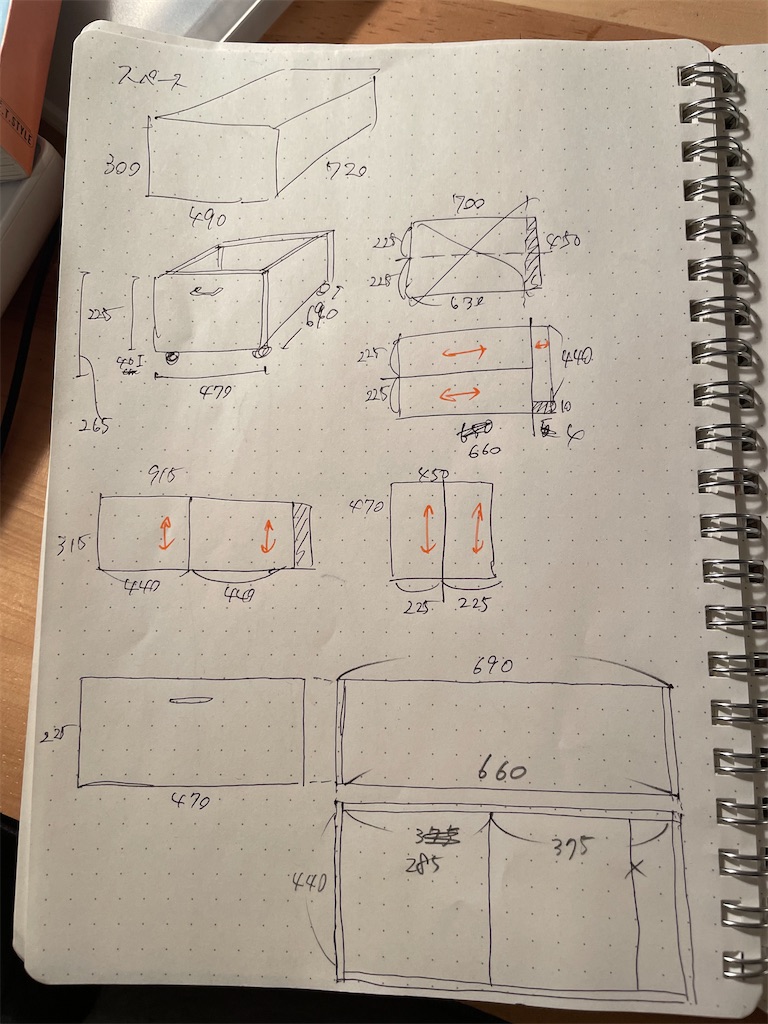 スペース
300
490
720
225
40
265
470
690
700
225
225
450
630
225
225
440
10
660
915
315
440
440
450
470
225 225
225
470
690
660
440
285
375
T.STYLE